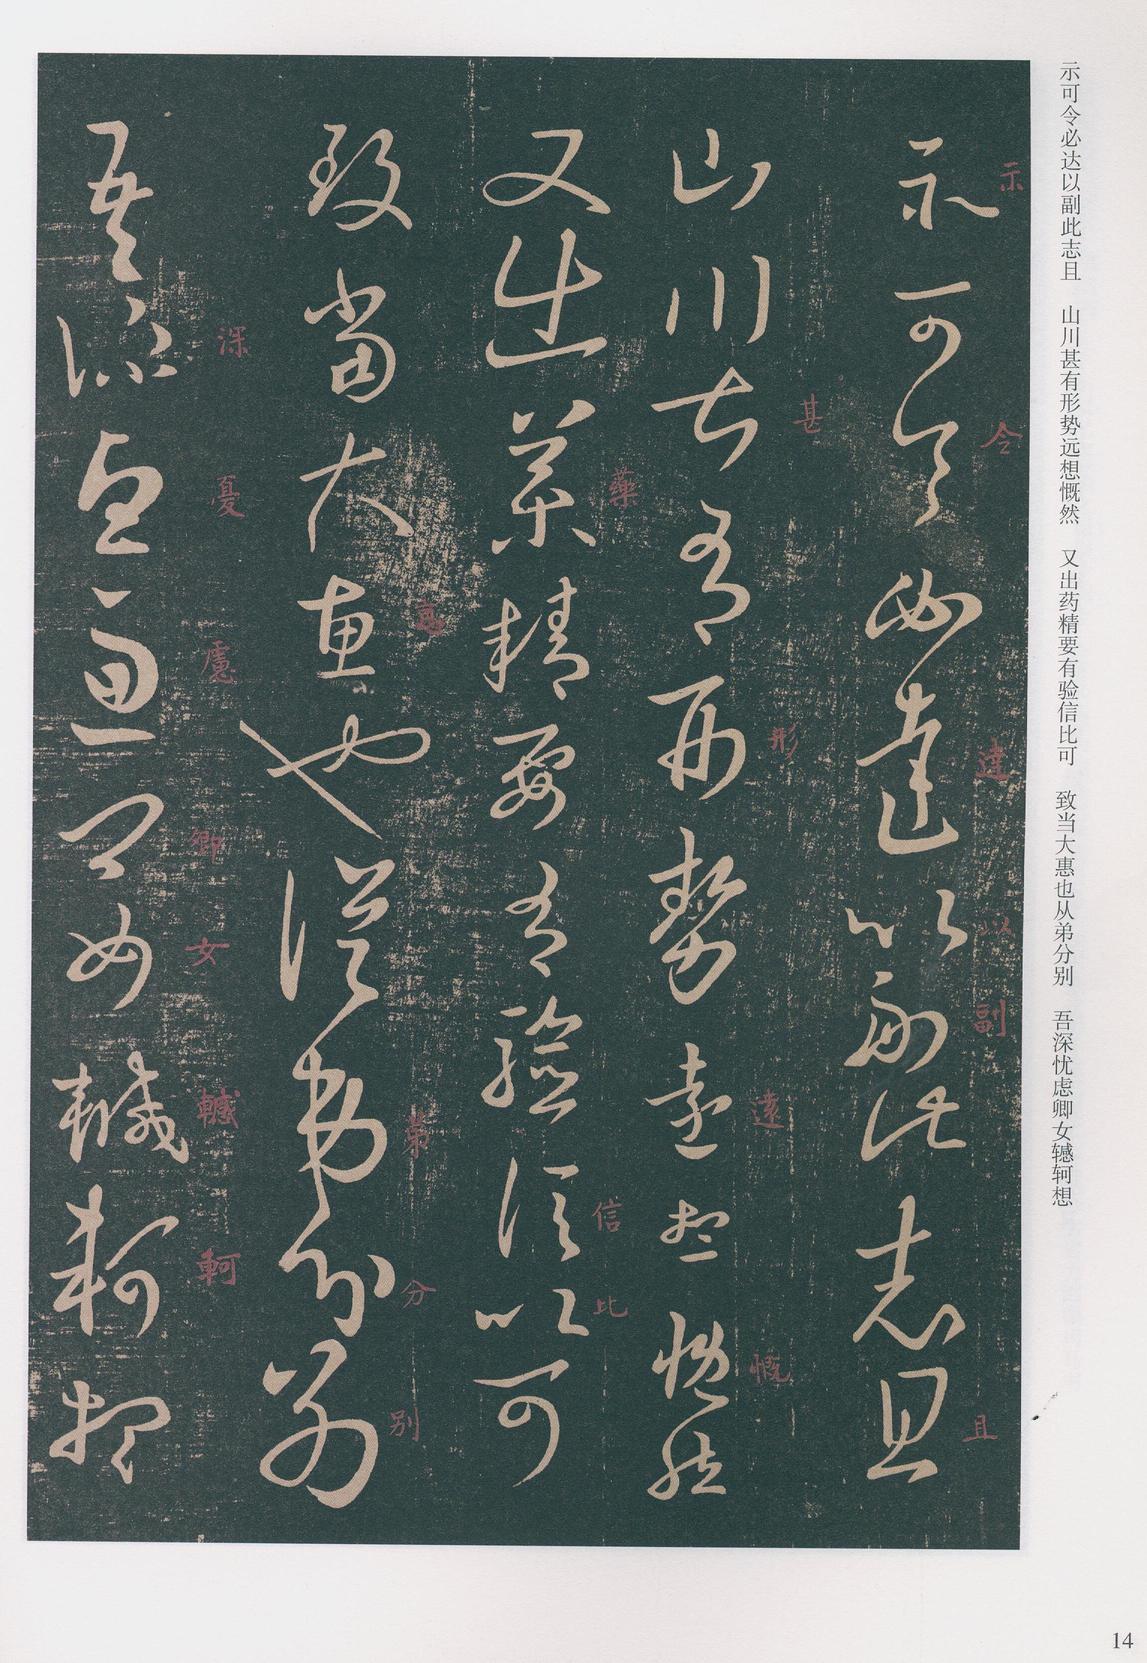 示可令必达以副此志且 山川甚有形势远想慨然 又出药精要有验信比可 致当大惠也从弟分别 吾深忧虑卿女轗轲想
示可令必達以副此志且
示
令
達
以
副
且
山川甚有形勢遠想慨然
甚
形
遠
慨
又出藥精要有驗信比可
藥
信
比
致當大惠也從弟分別
惠
弟
分
别
吾深憂慮卿女轗軻想
深
憂
慮
卿
女
轗
軻
14